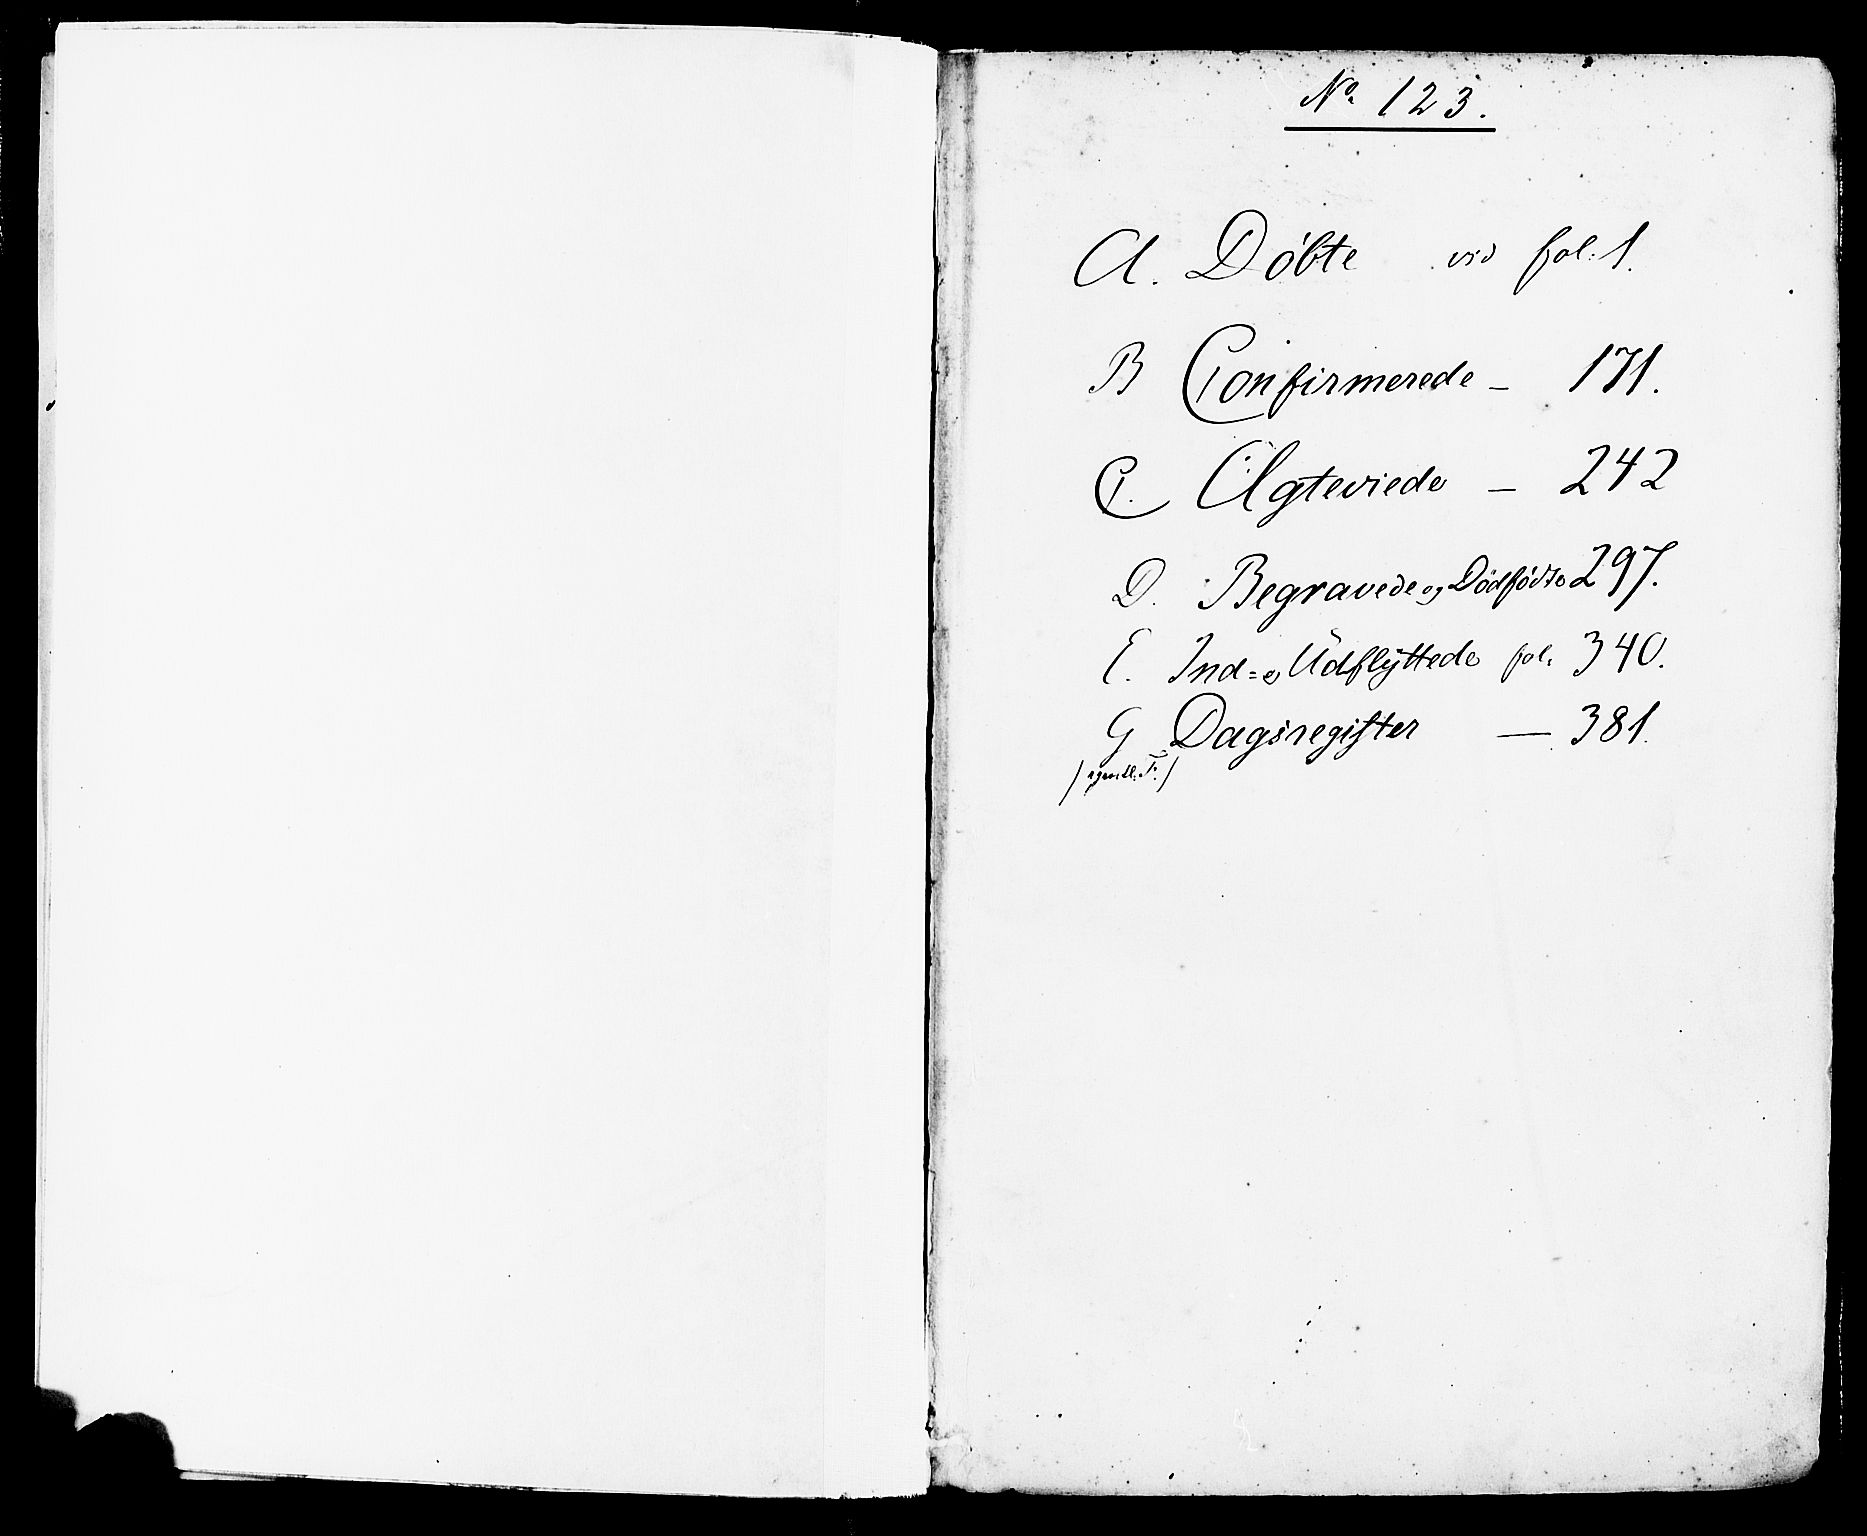 No. 123.
A. Döbte vid fol. 1.
B Confirmerede – 171.
C. Ægteviede – 242
D. Begravede og Dödfödte 297.
E. Ind= og Udflyttede fol. 340.
G Dagsregister — 381.
/egentl. F./